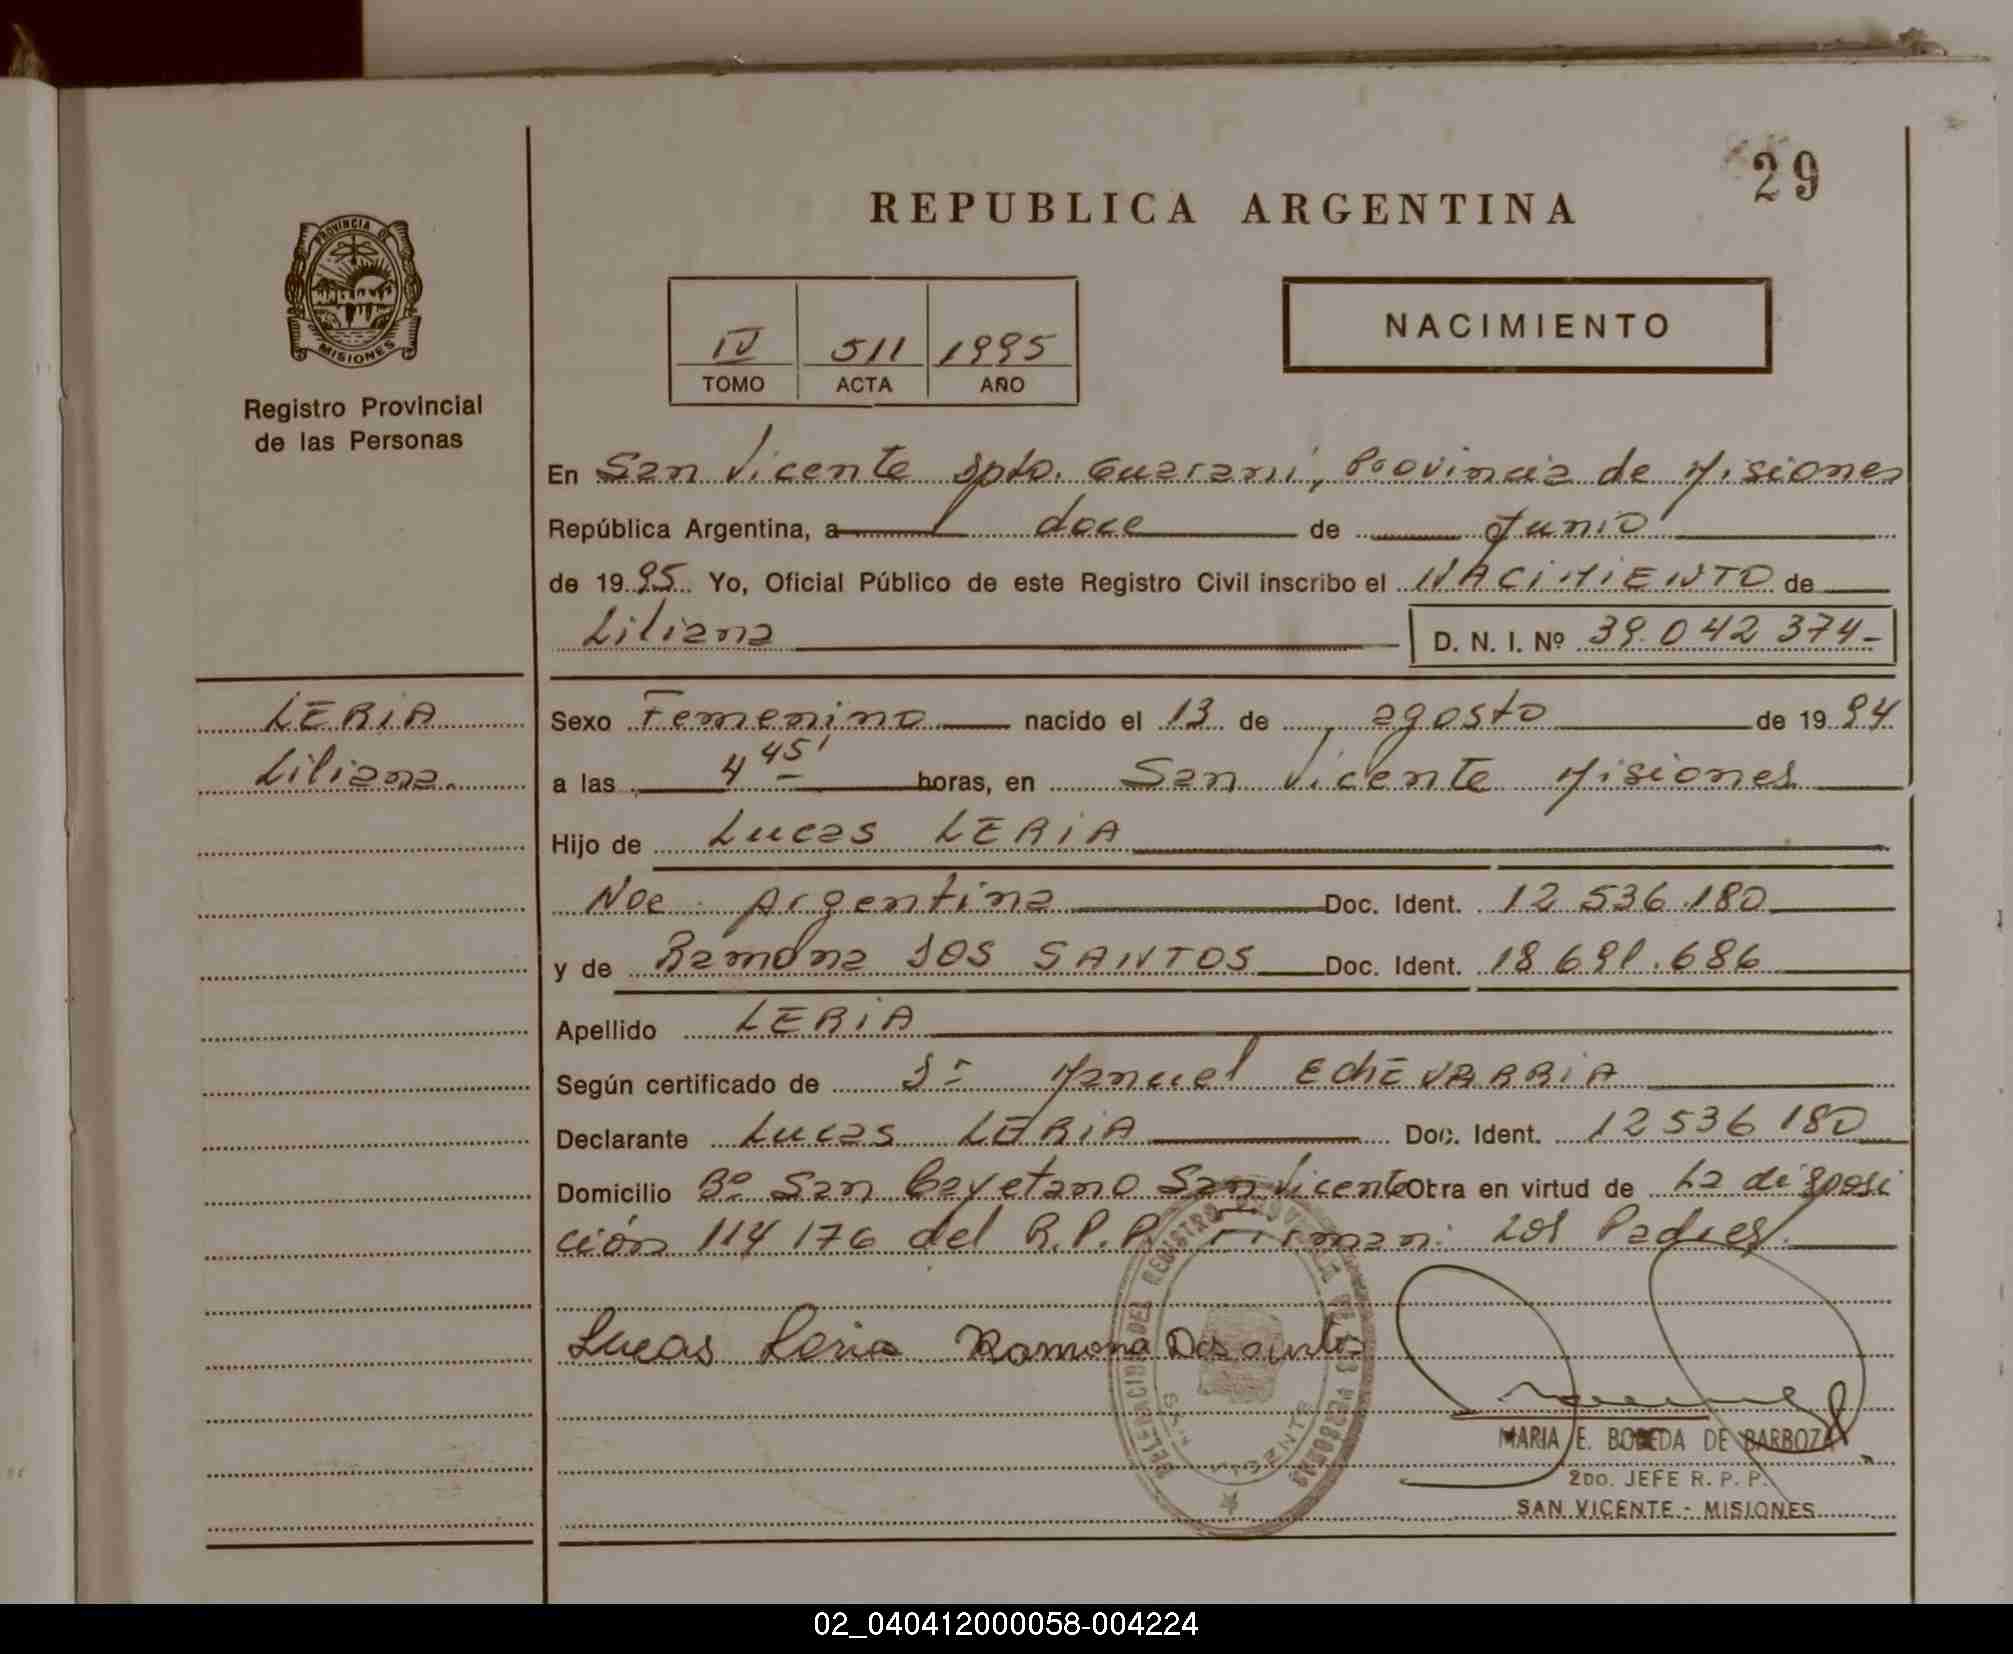 29
REPUBLICA ARGENTINA
PROVINCIA DE
MISIONES
Registro Provincial
de las Personas
IV 511 1995
TOMO ACTA AÑO
NACIMIENTO
En San Vicente Dpto. Guaraní, Provincia de Misiones
República Argentina, a doce de Junio
de 1995 Yo, Oficial Público de este Registro Civil inscribo el NACIMIENTO de
Liliana D. N. I. Nº 39.042 374-
LERIA
Liliana.
Sexo Femenino nacido el 13 de agosto de 1994
a las 4 45' horas, en San Vicente Misiones
Hijo de Lucas LERIA
Noe Argentina Doc. Ident. 12 536.180
y de Ramona DOS SANTOS Doc. Ident. 18 691.686
Apellido LERIA
Según certificado de Dr Manuel ECHEVARRIA
Declarante Lucas LERIA Doc. Ident. 12 536 180
Domicilio Bº San Cayetano San Vicente Otra en virtud de La disposi
ción 114 176 del R.P.P. Firman: Los Padres.
Lucas Leria Ramona Dos
DELEGACION DEL REGISTRO PROVINCIAL DE LAS PERSONAS
SAN VICENTE
MARIA E. BOBEDA DE BARBOZA
2DO. JEFE R. P. P.
SAN VICENTE - MISIONES
02_040412000058-004224